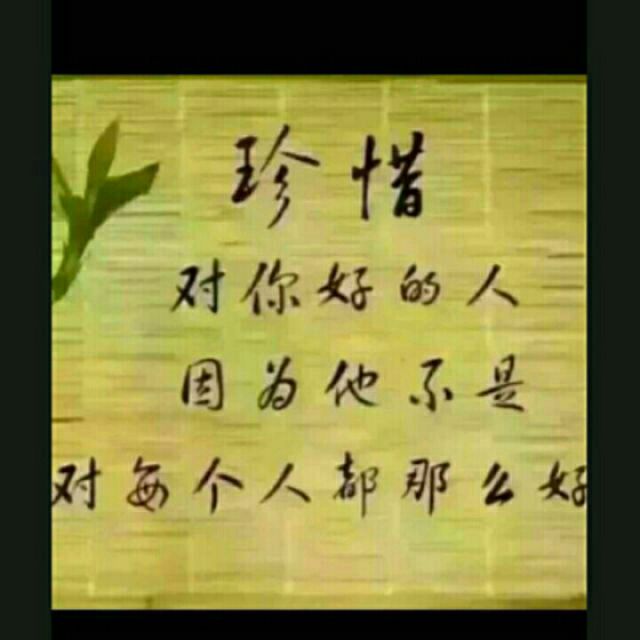 珍惜
对你好的人
因为他不是
对每个人都那么好